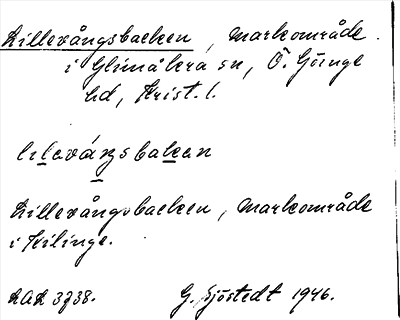 Lillevångsbacken, markområde
i Glimåkra sn, Ö. Göinge
hd, Krist. l.
lilevángsbakan
Lillevångsbacken, markområde
i Kilinge.
LAL 3738.   G. Sjöstedt 1946.